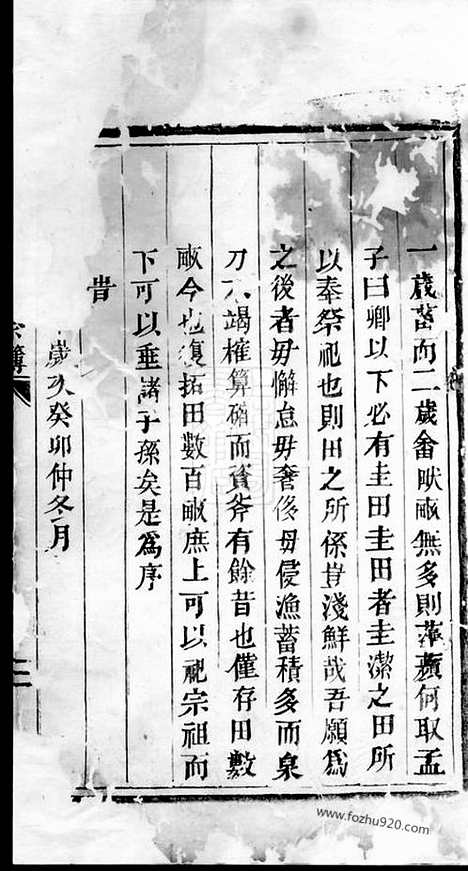 一歲菑而二歲畬畎畝無多則萍蘩何取孟
子曰卿以下必有圭田圭田者圭潔之田所
以奉祭祀也則田之所係豈淺鮮哉吾願爲
之後者毋懈怠毋奢侈毋侵漁蓄積多而泉
刀不竭權算磧而資斧有餘昔也僅存田數
畝今也復拓田數百畝庶上可以祀宗祖而
下可以垂諸子孫矣是爲序
旹
歲次癸卯仲冬月
簿
三
www.fozhu920.com